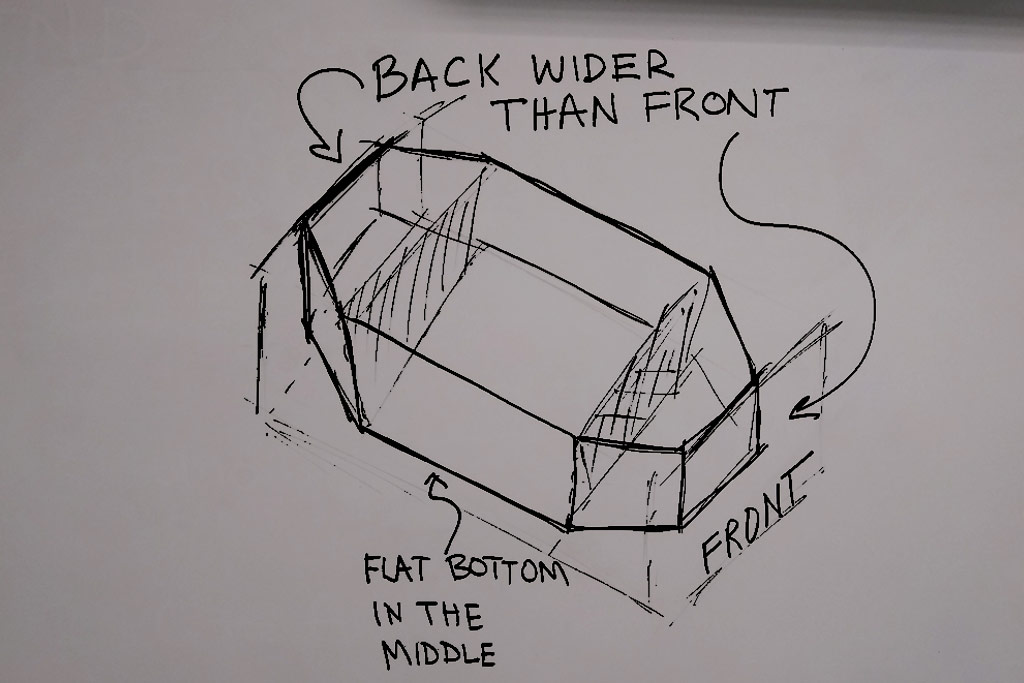 BACK WIDER
THAN FRONT
FRONT
FLAT BOTTOM
IN THE
MIDDLE